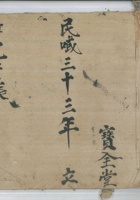 寶全堂
民國三十三年 立